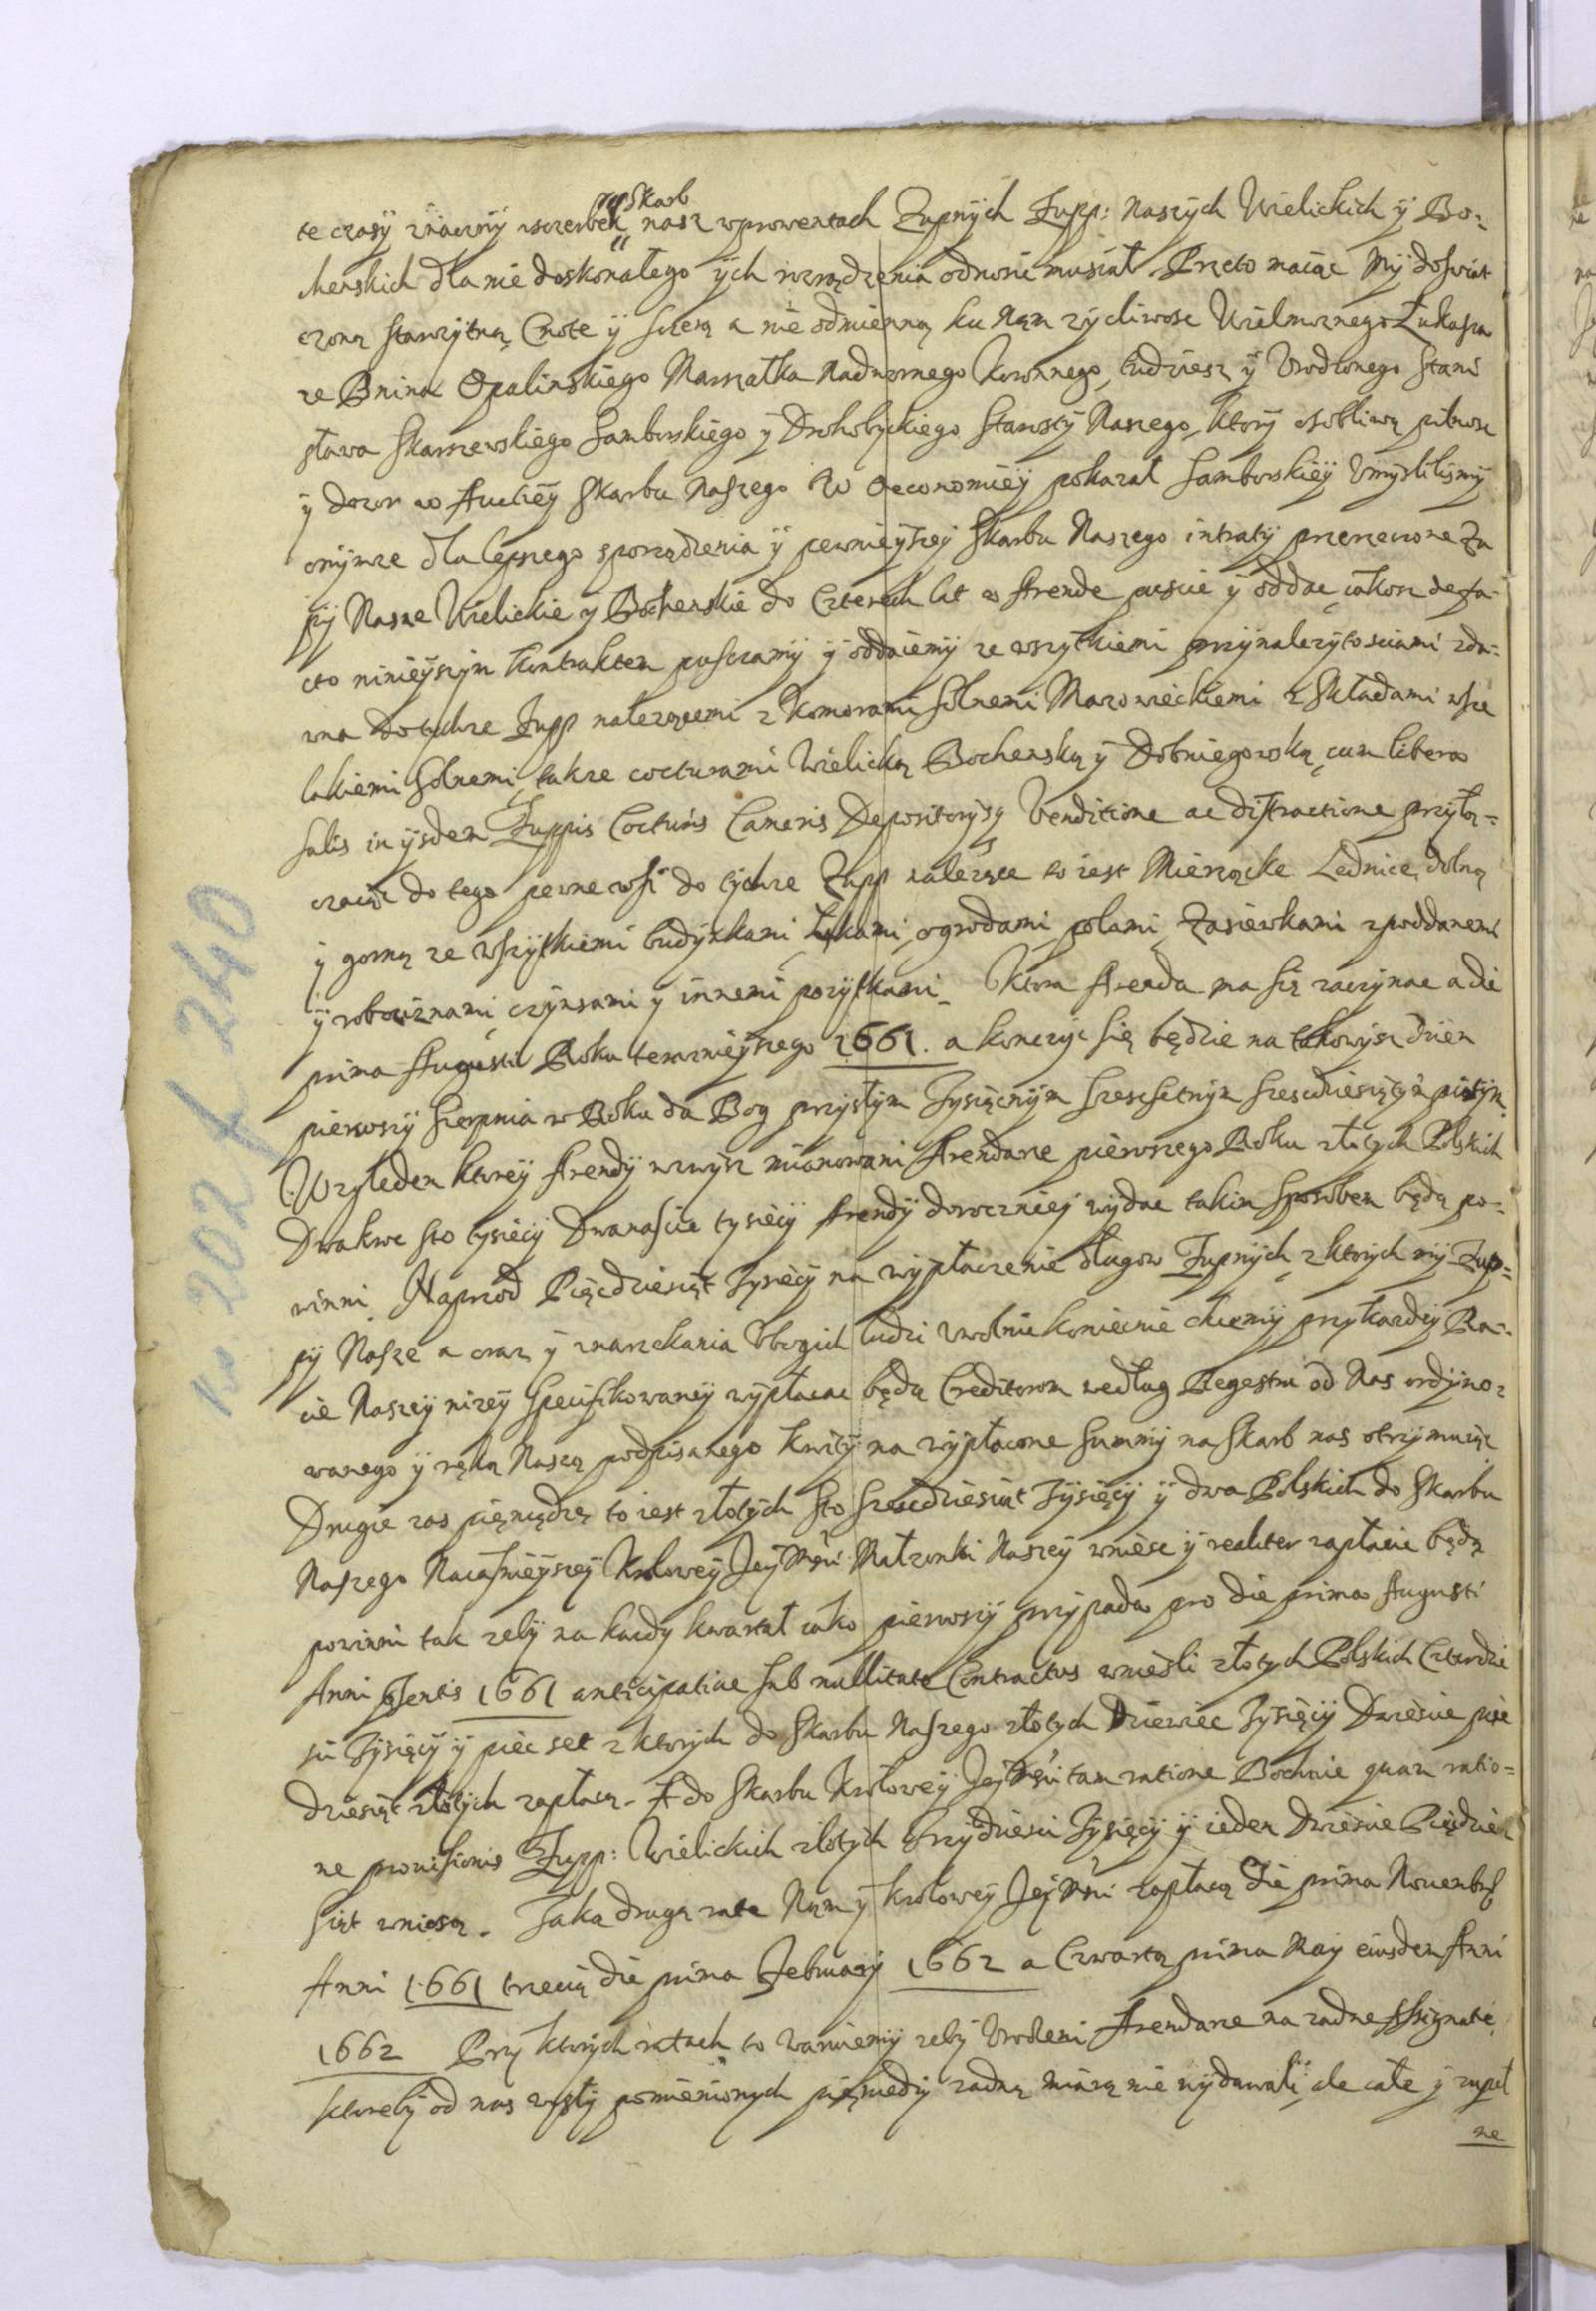 te czasy znaczny uszerbek Skarb nasz w prowentach Zupnych Zupp: Naszych Wielickich ÿ Bo=
chenskich dla nie doskonałego ÿch rozrządzenia odnosic musiał. Przeto maiąc Mÿ doswiat
czoną starozytną Cnote ÿ szczerą a nie odmienną ku Nam zyczliwosc Wielmoznego Łukasza
ze Bnina Opalinskiego Marszałka Nadwornego Koronnego, tudziesz ÿ Vrodzonego Stani
sława Skarszewskiego Samborskiego ÿ Drohobyckiego Starosty Naszego, Ktorÿ osobliwą pilnosc
ÿ dozor w Aucÿeÿ Skarbu Naszego W Oeconomieÿ pokazał Samborskieÿ Vmyslilismÿ
onÿmze dla lepszego sporządzenia ÿ pewnieÿszeÿ Skarbu Naszego intratÿ przerzeczone Zu
pÿ Nasze Wielickie ÿ Bochenskie do Czterech lat w Arende puscic ÿ oddac iakosz de fa-
cto ninieÿszÿm Kontraktem puszczamÿ ÿ oddaiemÿ ze wszytkiemi przynalezytosciami zda=
wna do tychze Zupp nalezącemi z Komorami Solnemi Mazowieckiemi z Składami wsze
lakiemi Solnemi, takze cocturami Wielicką Bochenską ÿ Dobniegowską, cum libera
Salis in ÿsdem Zuppis Cocturis Cameris Depositorÿsq Venditione ac distractione przyłą=
czaiąc do tego pewne wsi do tychze Zupp nalezące to iest Mierzączke Lednice, dolną
ÿ gorną ze wszytkiemi budynkami Łąkami, ogrodami, polami, Zasiewkami z poddanemi
ÿ robociznami, czynszami ÿ innemi pozytkami. Ktora Arenda ma się zaczynac a die
prima Augusti Roku teraznieÿszego 1661. a konczyc się będzie na takowysz dzien
pierwszÿ Sierpnia w Roku da Bog przyszłym Tysiącznym szescsetnym szescdziesiątym piątym.
Względem Ktoreÿ Arendÿ wzwysz mianowani Arendarze pierwszego Roku złotych Polskich
Dwakroc sto tysiecÿ Dwanascie tysiecÿ Arendÿ doroczneÿ wydac takim sposobem będą po=
winni. Naprzod Pięcdziesiąt Tysięcÿ na wypłaczenie długow Zupnych, z ktorych mÿ Zup=
pÿ Nasze a oraz ÿ znarzekania Vbogich ludzi vwolnic koniecznie chcemÿ przy kazdeÿ Ra=
cie Naszeÿ nizeÿ specifikowaneÿ wypłacac będą Creditorom według Regestru od Nas ordyno=
wanego ÿ ręką Naszą podpisanego kwity na wypłacone Summÿ na Skarb nas otrzymuiąc
Drugie zas pięniądze, to iest złotych Sto szescdziesiąt Tysięcÿ ÿ dwa Polskich do Skarbu
Naszego Naiasnieÿszeÿ Kroloweÿ Jeÿ Msci Małzonki Naszeÿ zniesc ÿ realiter zapłacic będą
powinni tak zebÿ na kazdy kwartał iako pierwszÿ przypada pro die prima Augusti
Anni psentis 1661 anticipative sub nullitate Contractus wniesli złotych Polskich Czterdzie
sci Tysięcÿ ÿ piec set z ktorych do Skarbu Naszego złotych Dziewiec Tysięcÿ Dwiescie piec
dziesiąt złotych zapłacą. A do Skarbu Kroloweÿ Jeÿ Msci tam ratione Bochnie quam ratio=
ne provisionis Zupp: Wielickich złotych trzydziesci Tysięcÿ ÿ ieden Dwiescie Pięcdzie
siąt wniosą. Taką drugą rate Nam ÿ Kroloweÿ Jeÿ Msci zapłacą die prima Nouembris
Anni 1661 trzecią die prima Februarÿ 1662 a Czwartą prima Maÿ eiusdem Anni
1662 Przy ktorych ratach to waruiemÿ zebÿ Vrodzeni Arendarze na zadne Assignatie,
ktorebÿ od nas wyszłÿ pomienionych pięniedzÿ zadną miarą nie wydawali, ale całe ÿ zupeł
ne
No 202 f 240